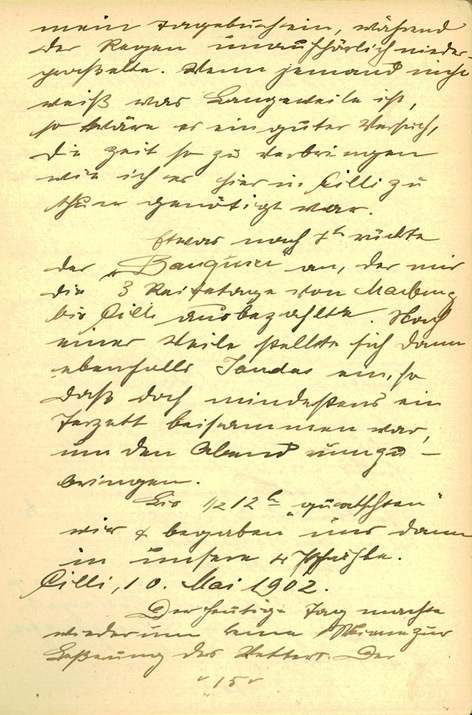 mein Tagebuch ein, während
der Regen unaufhörlich nieder-
prasselte. Wenn jemand nicht
weiß was Langeweile ist,
so wäre es ein guter Versuch,
die Zeit so zu verbringen
wie ich es hier in Cilli zu
thun genötigt war.
Etwas nach 7h rückte
der „Banquier" an, der mir
die 3 Reisetage von Marburg
bis Cilli ausbezahlte. Nach
einer Weile stellte sich dann
ebenfalls ein, so
daß doch mindestens ein
Terzett beisammen war,
um den Abend umzu-
bringen.
Bis 1/2 12h „quatschten"
wir & begaben uns dann
in unsere
Cilli, 10. Mai 1902.
Der heutige Tag machte
wiederum keine Miene zur
Besserung des Wetters. Der
"15"